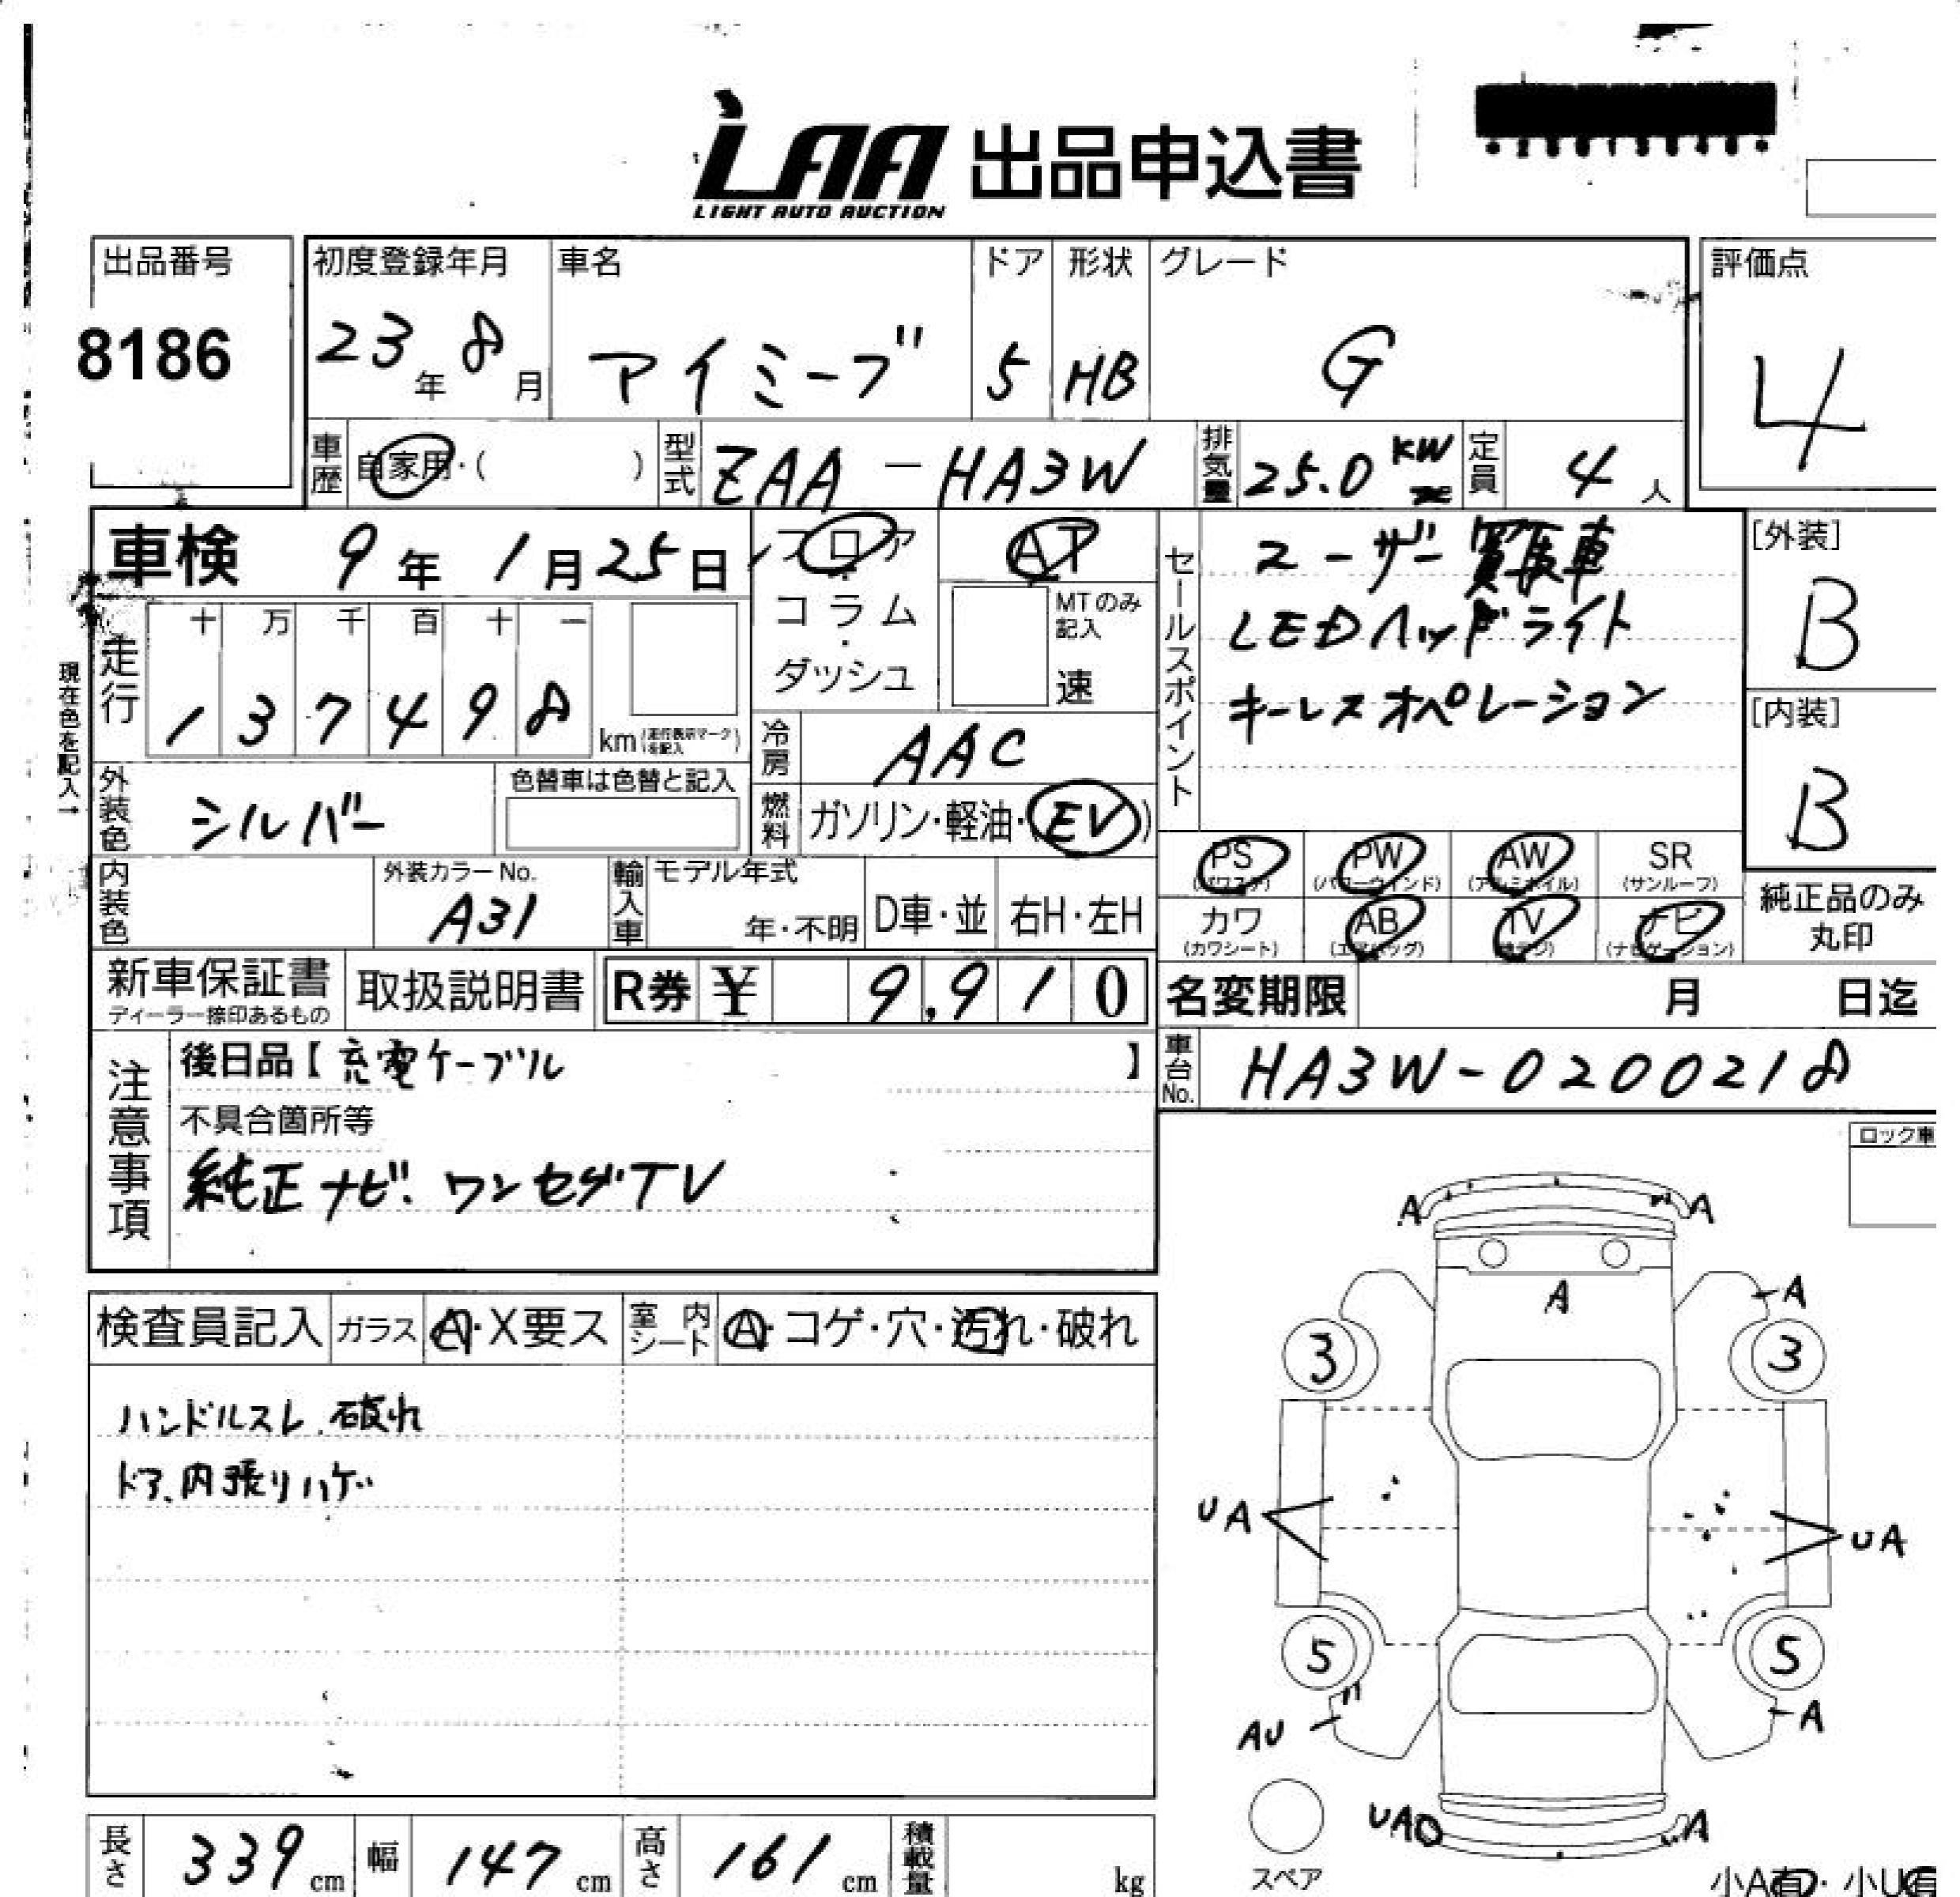 LAA 出品申込書
LIGHT AUTO AUCTION
出品番号
8186
初度登録年月 車名 ドア 形状 グレード 評価点
23年 8月 アイミーブ 5 HB G 4
車歴 自家用・( ) 型式 ZAA-HA3W 排気量 25.0 KW 定員 4人
車検 9年 1月 25日
フロア・コラム・ダッシュ
AT
MTのみ記入
速
セールスポイント
ユーザー買取車
LEDヘッドライト
キーレスオペレーション
[外装]
B
[内装]
B
現在色を記入→
走行 十 万 千 百 十 一
1 3 7 4 9 8 km(走行表示マークを記入)
冷房 AAC
外装色 シルバー 色替車は色替と記入
燃料 ガソリン・軽油・(EV)
PS (パワステ) PW (パワーウィンド) AW (アルミホイル) SR (サンルーフ)
カワ (カワシート) AB (エアバッグ) TV (地デジ) ナビ (ナビゲーション)
純正品のみ丸印
内装色 外装カラーNo. A31 輸入車 モデル年式 年・不明 D車・並 右H・左H
新車保証書 ディーラー捺印あるもの 取扱説明書 R券 ¥ 9,910
名変期限 月 日迄
注意事項
後日品【充電ケーブル】
不具合箇所等
純正ナビ.ワンセグTV
車台No. HA3W-0200218
ロック車
検査員記入 ガラス A・X要ス 室内シート A・コゲ・穴・汚れ・破れ
ハンドルスレ.破れ
ドア.内張りハゲ
A A
A
A
3 3
UA UA
5 5
AU A
UA A
スペア
長さ 339cm 幅 147cm 高さ 161cm 積載量 kg
小A有・小U有